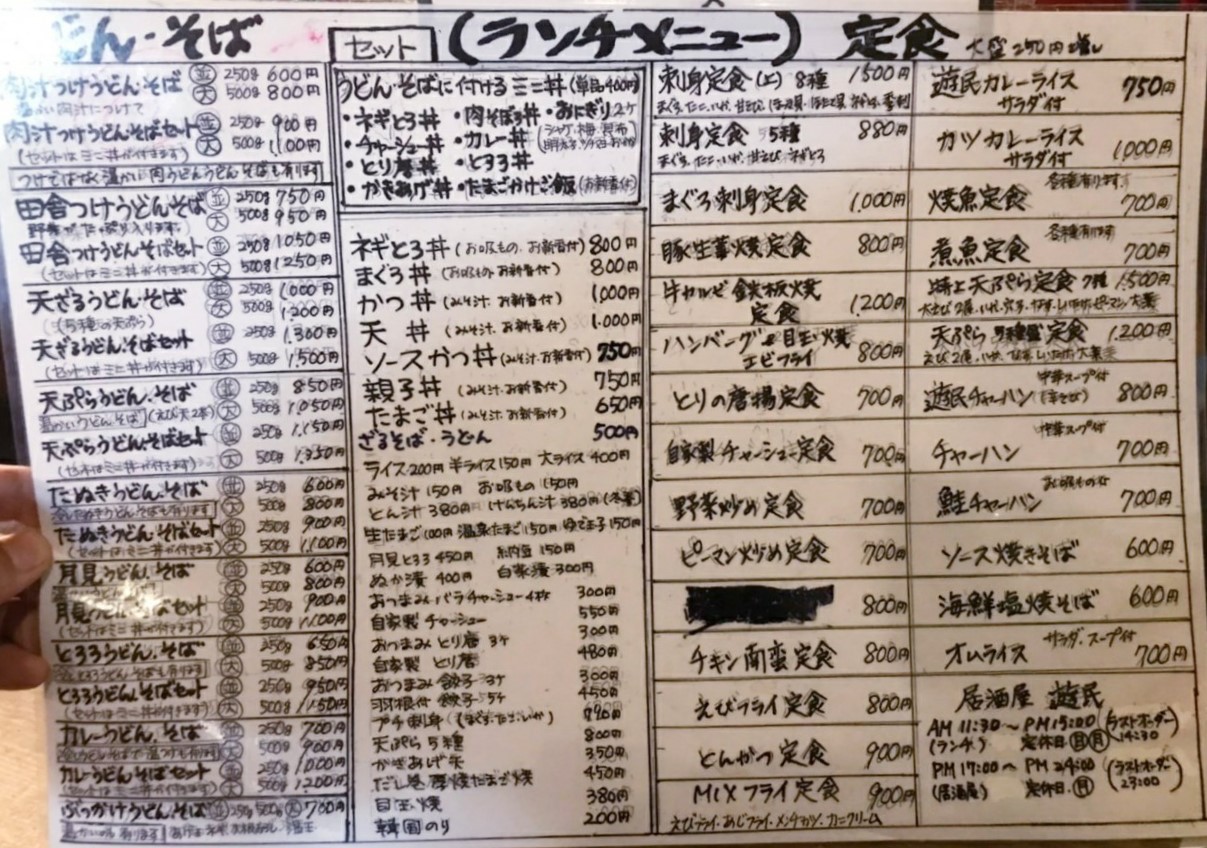 どん・そば
セット
(ランチメニュー) 定食 大盛250円増し
肉汁つけうどん・そば 並 250g 600円
大 500g 800円
温かい肉汁につけて
肉汁つけうどん・そばセット 並 250g 900円
(セットはミニ丼が付きます) 大 500g 1,100円
つけではなく温かい肉うどんそばも有ります
田舎つけうどん・そば 並 250g 750円
野菜がたっぷり入ります。 大 500g 950円
田舎つけうどん・そばセット 並 250g 1050円
(セットはミニ丼が付きます) 大 500g 1250円
天ざるうどん・そば 並 250g 1,000円
(5種の天ぷら) 大 500g 1,200円
天ざるうどん・そばセット 並 250g 1,300円
(セットはミニ丼が付きます) 大 500g 1,500円
天ぷらうどん・そば 並 250g 850円
温かいうどん・そば (えび天2本) 大 500g 1,050円
天ぷらうどん・そばセット 並 250g 1,150円
(セットはミニ丼が付きます) 大 500g 1,350円
たぬきうどん・そば 並 250g 600円
冷したぬきうどん・そばも有ります 大 500g 800円
たぬきうどん・そばセット 並 250g 900円
(セットはミニ丼が付きます) 大 500g 1,100円
月見うどん・そば 並 250g 600円
大 500g 800円
月見うどん・そばセット 並 250g 900円
(セットはミニ丼が付きます) 大 500g 1,100円
とろろうどん・そば 並 250g 650円
大 500g 850円
とろろうどん・そばセット 並 250g 950円
(セットはミニ丼が付きます) 大 500g 1,150円
カレーうどん・そば 並 250g 700円
大 500g 900円
カレーうどん・そばセット 並 250g 1,000円
(セットはミニ丼が付きます) 大 500g 1,200円
ぶっかけうどん・そば 並 250g 500g 大 700円
温かいのも有ります
うどん・そばに付ける ミニ丼 (単品400円)
・ネギとろ丼 ・肉そぼろ丼 ・おにぎり2ケ
・チャーシュー丼 ・カレー丼 (シャケ・梅・昆布
・とり唐丼 ・とろろ丼
・かきあげ丼 ・たまごかけご飯 (お新香付)
ネギとろ丼 (お吸もの、お新香付) 800円
まぐろ丼 (お吸もの、お新香付) 800円
かつ丼 (みそ汁、お新香付) 1,000円
天丼 (みそ汁、お新香付) 1,000円
ソースかつ丼 (みそ汁、お新香付) 750円
親子丼 (みそ汁、お新香付) 750円
たまご丼 (みそ汁、お新香付) 650円
ざるそば・うどん 500円
ライス200円 半ライス150円 大ライス400円
みそ汁150円 お吸もの150円
とん汁380円 けんちん汁380円(冬季)
生たまご100円 温泉たまご150円 ゆで玉子150円
月見とろろ450円 納豆150円
ぬか漬400円 自家漬300円
おつまみバラチャーシュー4枚 300円
自家製チャーシュー 550円
おつまみ とり唐 3ケ 300円
自家製 とり唐 480円
おつまみ 餃子 3ケ 300円
羽根付 餃子 5ケ 450円
プチ刺身 (まぐろ・たこ・いか) 790円
天ぷら5種 800円
かきあげ天 350円
だし巻 厚焼たまご焼 450円
目玉焼 380円
韓国のり 200円
刺身定食(上) 8種 1500円
刺身定食 5種 880円
まぐろ、たこ、いか、甘えび、ネギとろ
まぐろ刺身定食 1,000円
豚生姜焼定食 800円
牛カルビ鉄板焼定食 1,200円
ハンバーグと目玉焼 エビフライ 800円
とりの唐揚定食 700円
自家製チャーシュー定食 700円
野菜炒め定食 700円
ピーマン炒め定食 700円
800円
チキン南蛮定食 800円
えびフライ定食 800円
とんかつ定食 900円
MIXフライ定食 900円
えびフライ・あじフライ・メンチカツ・カニクリーム
遊民カレーライス サラダ付 750円
カツカレーライス サラダ付 1,000円
焼魚定食 各種有ります 700円
煮魚定食 各種有ります 700円
特上天ぷら定食 7種 1,500円
天ぷら5種盛定食 1,200円
遊民チャーハン (辛さび) 中華スープ付 800円
チャーハン 中華スープ付 700円
鮭チャーハン お吸もの付 700円
ソース焼きそば 600円
海鮮塩焼そば 600円
オムライス サラダ、スープ付 700円
居酒屋 遊民
AM11:30〜PM15:00 (ラストオーダー 14:30)
(ランチ) 定休日 日 月
PM17:00〜PM24:00 (ラストオーダー 23:00)
(居酒屋) 定休日 月